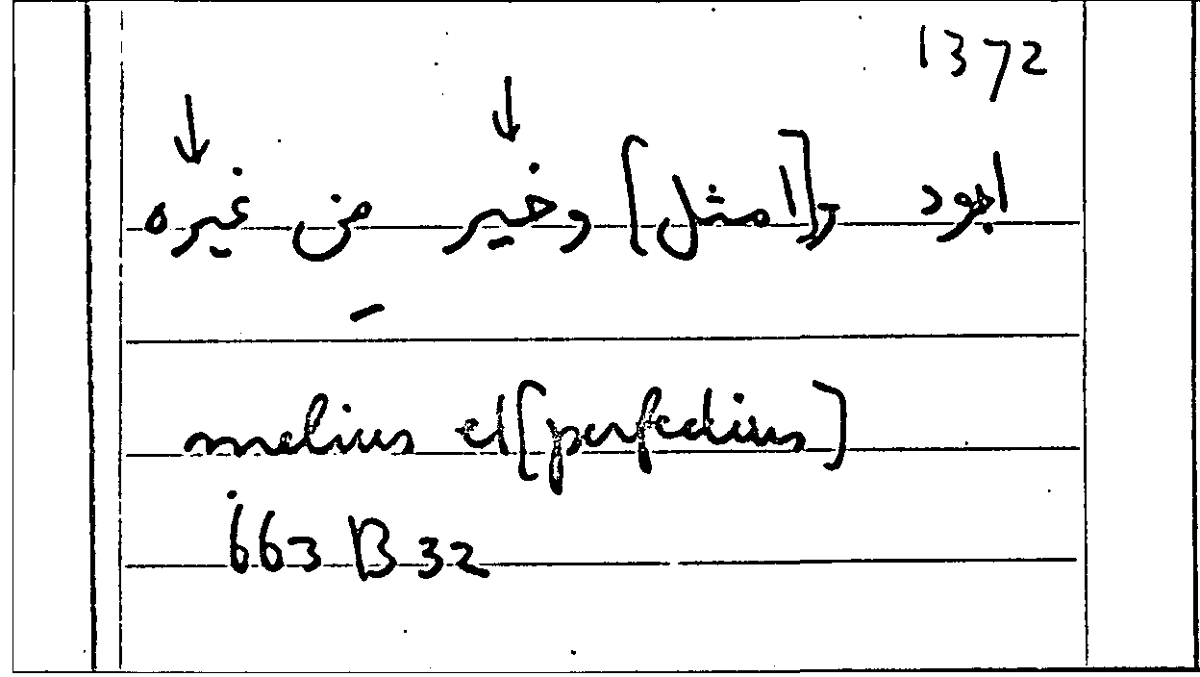 1372
اجود و[امثل] وخير من غيره
melius et [perfectius]
663 B 32